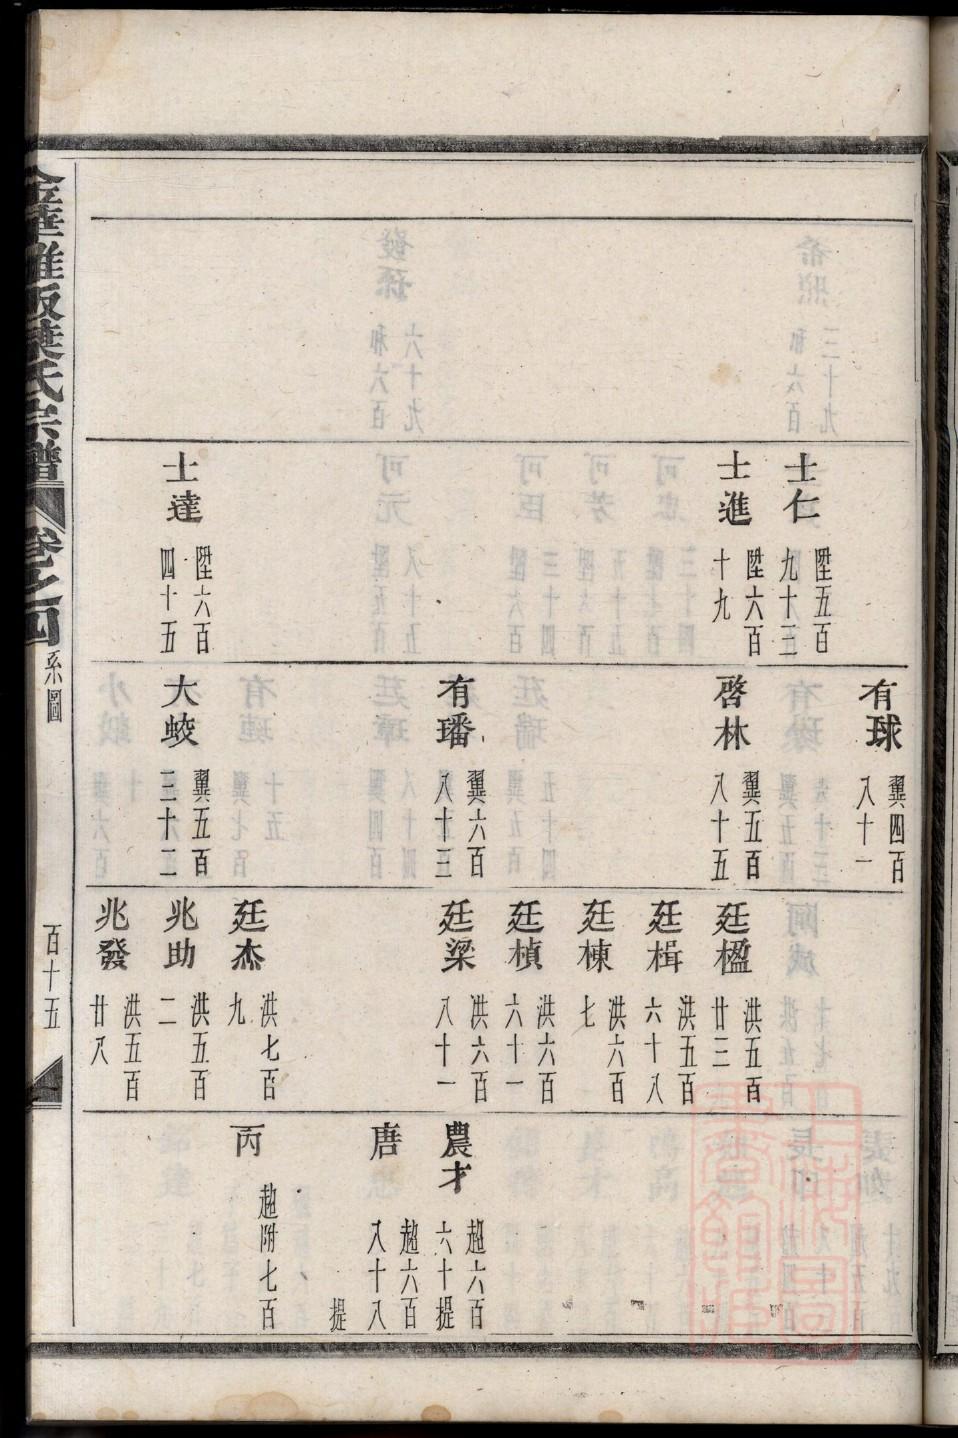 士仁
陞五百
九十三
士進
陞六百
十九
士達
陞六百
四十五
有球
翼四百
八十一
啓林
翼五百
八十五
有璠
翼六百
八十三
大蛟
翼五百
三十二
廷楹
洪五百
廿三
廷楫
洪五百
六十八
廷棟
洪六百
七
廷楨
洪六百
六十一
廷梁
洪六百
八十一
廷杰
洪七百
九
兆助
洪五百
二
兆發
洪五百
廿八
農才
趙六百
六十提
唐
趙六百
八十八
提
丙
趙附七百
華雅畈葉氏宗譜
卷之四
系圖
百十五